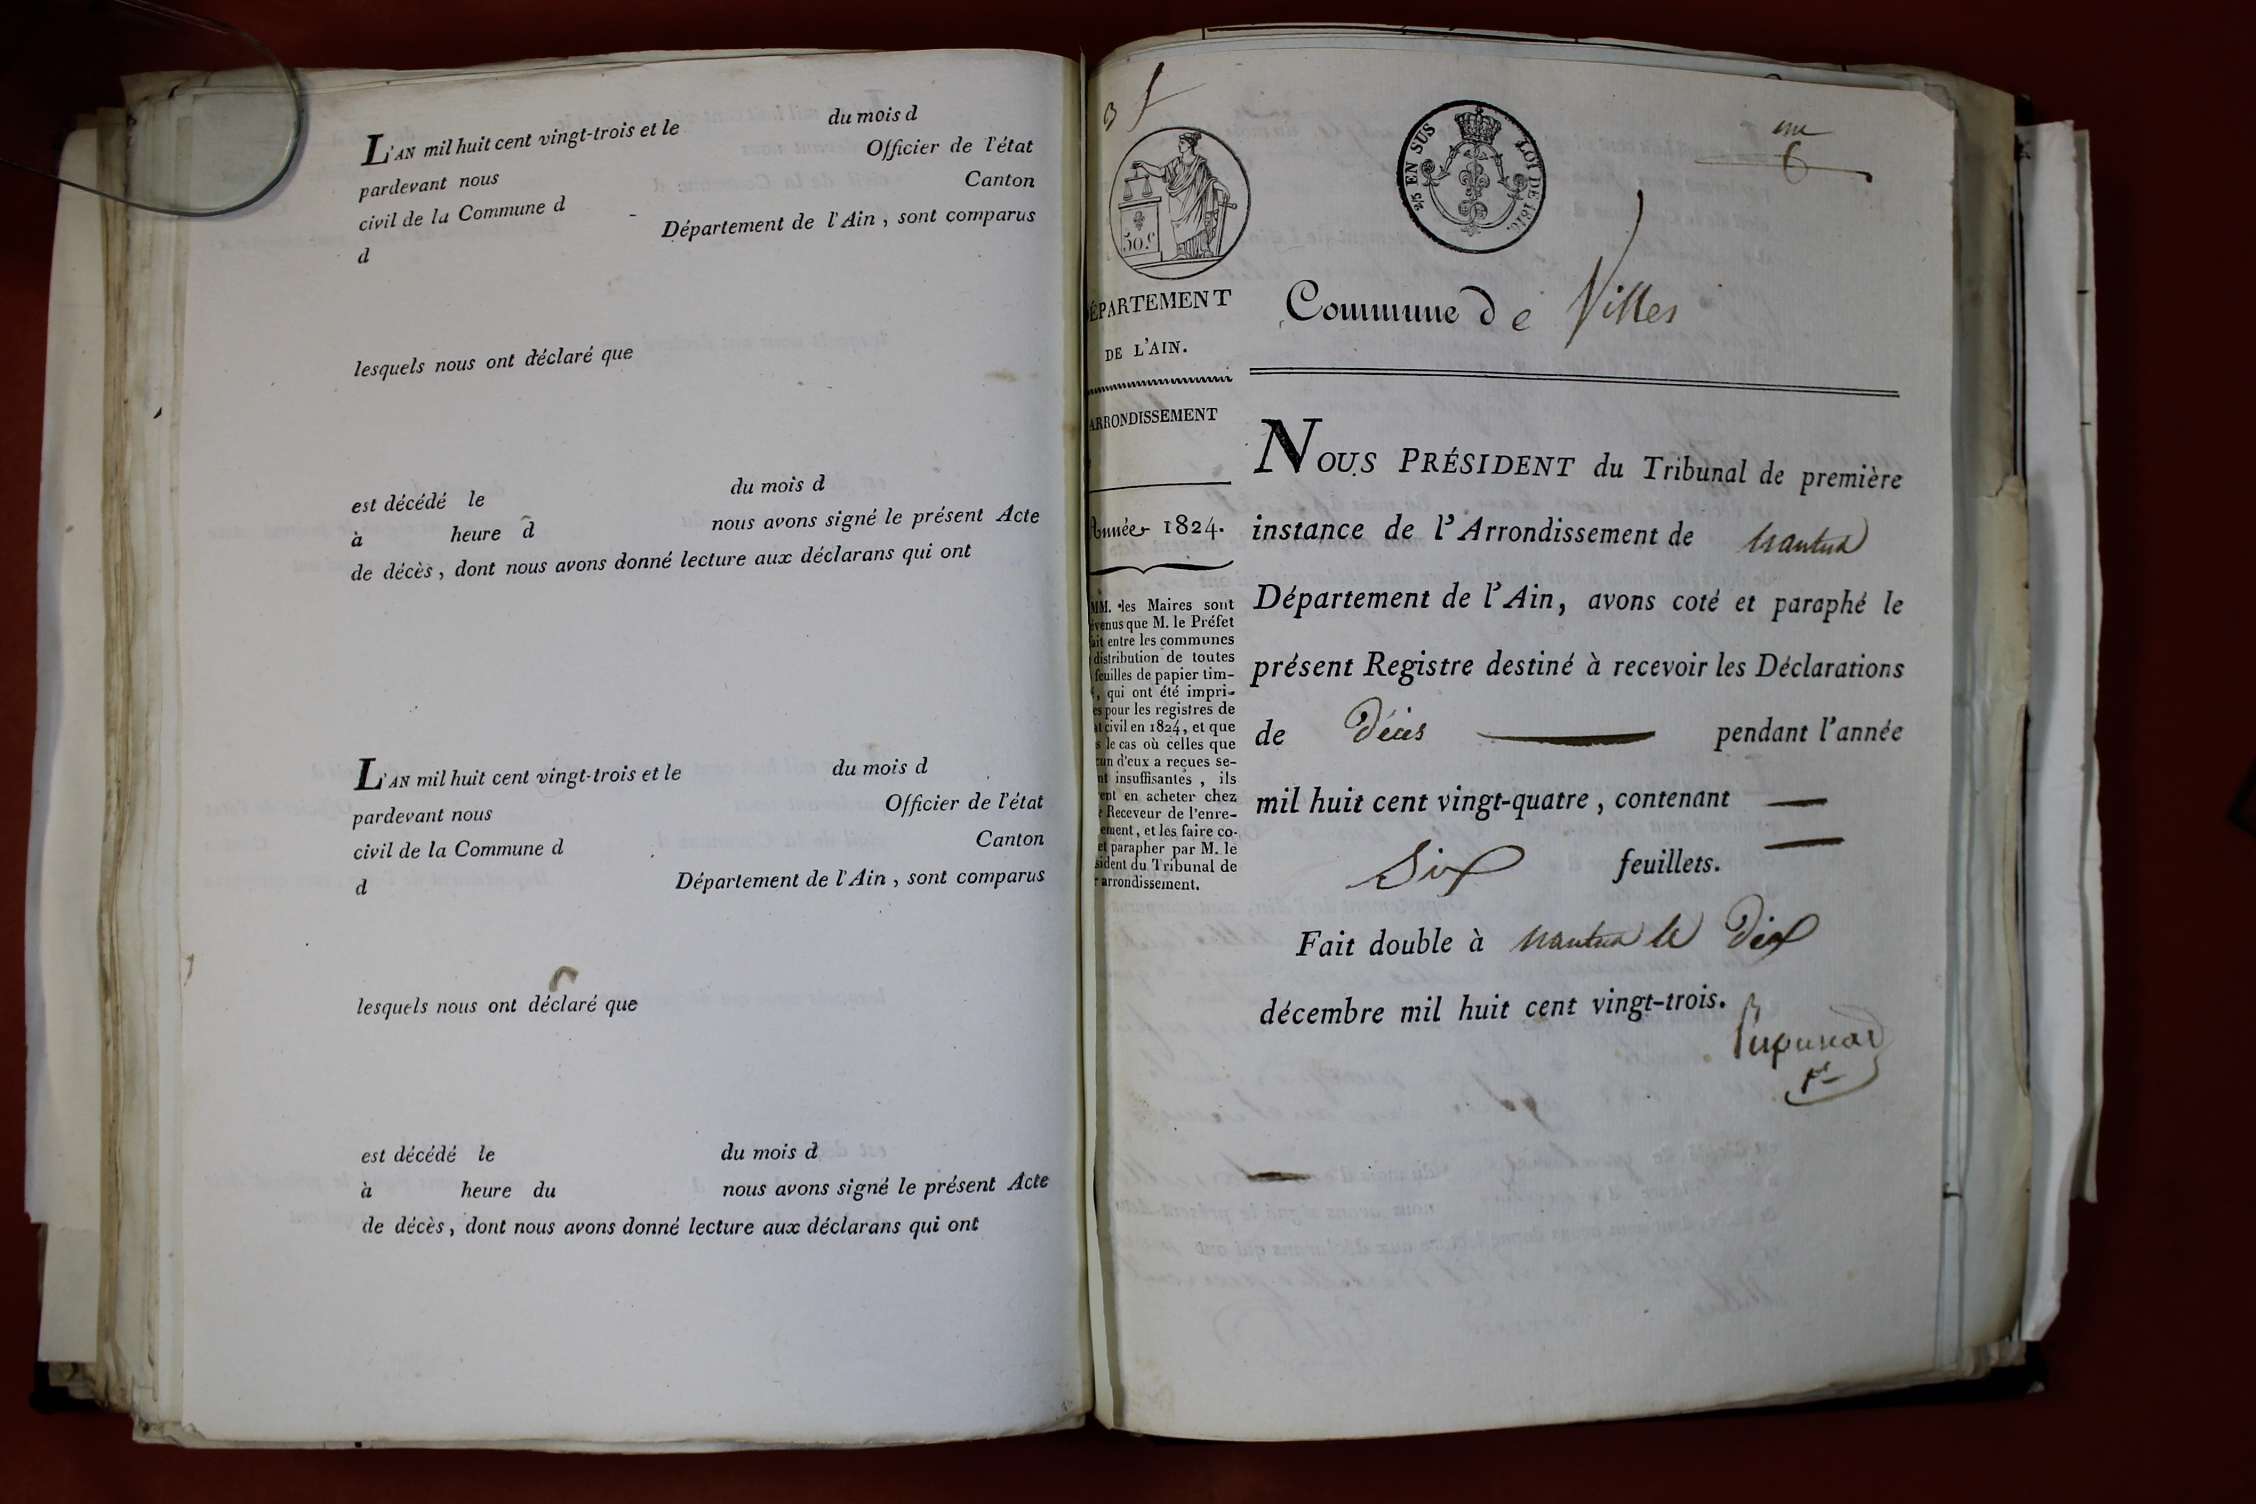 L'AN mil huit cent vingt-trois et le du mois d
pardevant nous Officier de l'état
civil de la Commune d Canton
d Département de l'Ain, sont comparus
lesquels nous ont déclaré que
est décédé le du mois d
à heure d nous avons signé le présent Acte
de décès, dont nous avons donné lecture aux déclarans qui ont
L'AN mil huit cent vingt-trois et le du mois d
pardevant nous Officier de l'état
civil de la Commune d Canton
d Département de l'Ain, sont comparus
lesquels nous ont déclaré que
est décédé le du mois d
à heure du nous avons signé le présent Acte
de décès, dont nous avons donné lecture aux déclarans qui ont
50.c
EN SUS LOI DE 1816.
me
6
DÉPARTEMENT
DE L'AIN.
ARRONDISSEMENT
Année 1824.
MM. les Maires sont
venus que M. le Préfet
ait entre les communes
distribution de toutes
feuilles de papier tim-
, qui ont été impri-
es pour les registres de
at civil en 1824, et que
s le cas où celles que
cun d'eux a reçues se-
nt insuffisantes, ils
ent en acheter chez
e Receveur de l'enre-
ement, et les faire co-
et parapher par M. le
sident du Tribunal de
r arrondissement.
Commune de Villes
NOUS PRÉSIDENT du Tribunal de première
instance de l'Arrondissement de nantua
Département de l'Ain, avons coté et paraphé le
présent Registre destiné à recevoir les Déclarations
de Décès pendant l'année
mil huit cent vingt-quatre, contenant
Six feuillets.
Fait double à nantua le Dix
décembre mil huit cent vingt-trois.